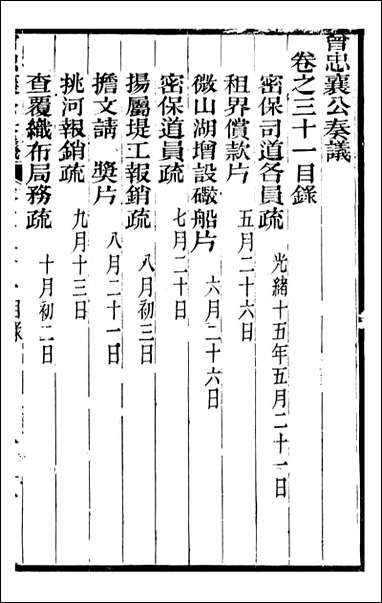 曾忠襄公奏議
卷之三十一目錄
密保司道各員疏 光緒十五年五月二十一日
租界償款片 五月二十六日
微山湖增設礮船片 六月二十六日
密保道員疏 七月二十日
揚屬堤工報銷疏 八月初三日
擔文請 獎片 八月二十一日
挑河報銷疏 九月十三日
查覆織布局務疏 十月初二日